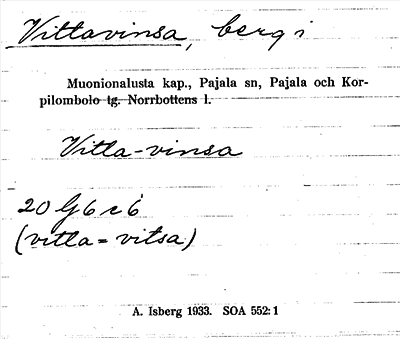 Vittavinsa, berg i
Muonionalusta kap., Pajala sn, Pajala och Kor-
pilombolo tg. Norrbottens l.
Vitta-vinsa
20 G 6 c 6
(vitta = vitsa)
A. Isberg 1933. SOA 552:1